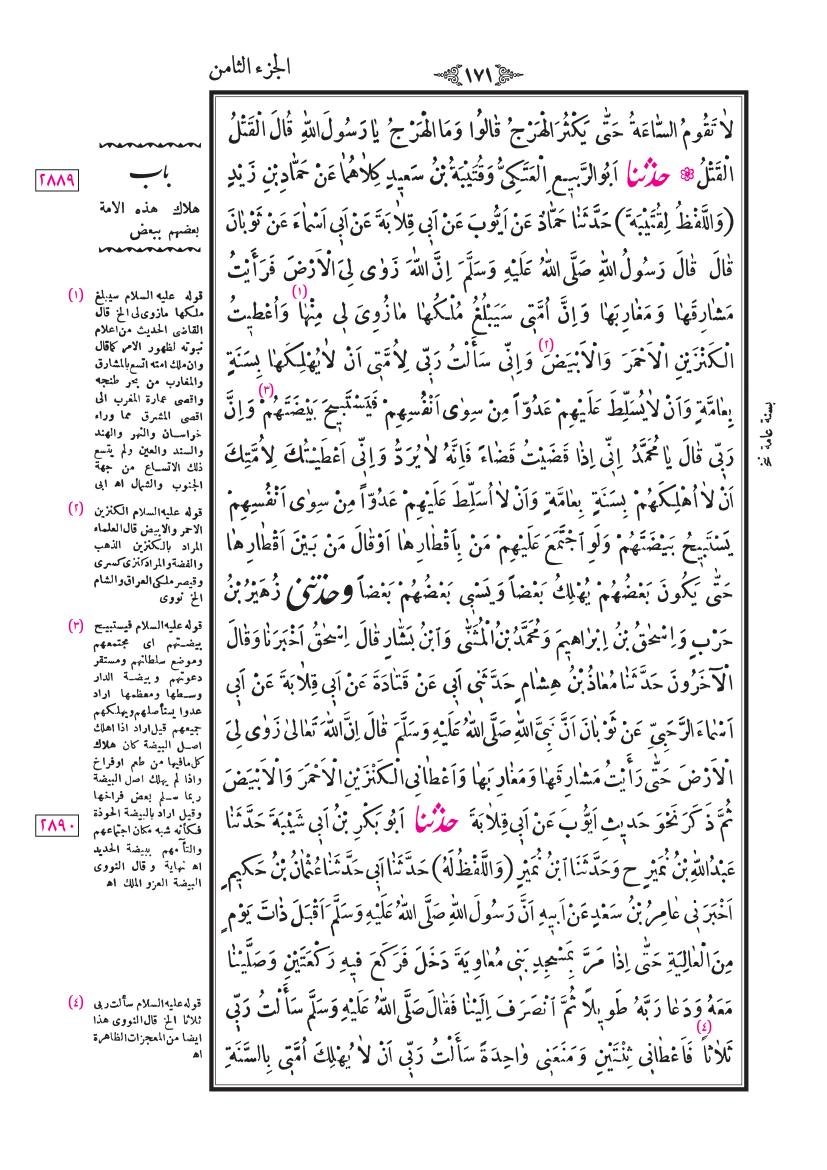 ١٧١
الجزء الثامن
لَا تَقُومُ السَّاعَةُ حَتّٰى يَكْثُرَ الْهَرْجُ قَالُوا وَمَا الْهَرْجُ يَا رَسُولَ اللّٰهِ قَالَ الْقَتْلُ
الْقَتْلُ ❁ حدثنا اَبُو الرَّبِيعِ الْعَتَكِيُّ وَقُتَيْبَةُ بْنُ سَعِيدٍ كِلَاهُمَا عَنْ حَمَّادِ بْنِ زَيْدٍ
(وَاللَّفْظُ لِقُتَيْبَةَ) حَدَّثَنَا حَمَّادٌ عَنْ اَيُّوبَ عَنْ اَبِي قِلَابَةَ عَنْ اَبِي اَسْمَاءَ عَنْ ثَوْبَانَ
قَالَ قَالَ رَسُولُ اللّٰهِ صَلَّى اللّٰهُ عَلَيْهِ وَسَلَّمَ اِنَّ اللّٰهَ زَوٰى لِيَ الْاَرْضَ فَرَأَيْتُ
مَشَارِقَهَا وَمَغَارِبَهَا وَاِنَّ اُمَّتِي سَيَبْلُغُ مُلْكُهَا مَا زُوِيَ لِي مِنْهَا (١) وَاُعْطِيتُ
الْكَنْزَيْنِ الْاَحْمَرَ وَالْاَبْيَضَ (٢) وَاِنِّي سَأَلْتُ رَبِّي لِاُمَّتِي اَنْ لَا يُهْلِكَهَا بِسَنَةٍ
بِعَامَّةٍ وَاَنْ لَا يُسَلِّطَ عَلَيْهِمْ عَدُوًّا مِنْ سِوٰى اَنْفُسِهِمْ فَيَسْتَبِيحَ بَيْضَتَهُمْ (٣) وَاِنَّ
رَبِّي قَالَ يَا مُحَمَّدُ اِنِّي اِذَا قَضَيْتُ قَضَاءً فَاِنَّهُ لَا يُرَدُّ وَاِنِّي اَعْطَيْتُكَ لِاُمَّتِكَ
اَنْ لَا اُهْلِكَهُمْ بِسَنَةٍ بِعَامَّةٍ وَاَنْ لَا اُسَلِّطَ عَلَيْهِمْ عَدُوًّا مِنْ سِوٰى اَنْفُسِهِمْ
يَسْتَبِيحُ بَيْضَتَهُمْ وَلَوِ اجْتَمَعَ عَلَيْهِمْ مَنْ بِاَقْطَارِهَا اَوْ قَالَ مَنْ بَيْنَ اَقْطَارِهَا
حَتّٰى يَكُونَ بَعْضُهُمْ يُهْلِكُ بَعْضًا وَيَسْبِي بَعْضُهُمْ بَعْضًا وحدثنى زُهَيْرُ بْنُ
حَرْبٍ وَاِسْحٰقُ بْنُ اِبْرَاهِيمَ وَمُحَمَّدُ بْنُ الْمُثَنّٰى وَابْنُ بَشَّارٍ قَالَ اِسْحٰقُ اَخْبَرَنَا وَقَالَ
الْآخَرُونَ حَدَّثَنَا مُعَاذُ بْنُ هِشَامٍ حَدَّثَنِي اَبِي عَنْ قَتَادَةَ عَنْ اَبِي قِلَابَةَ عَنْ اَبِي
اَسْمَاءَ الرَّحَبِيِّ عَنْ ثَوْبَانَ اَنَّ نَبِيَّ اللّٰهِ صَلَّى اللّٰهُ عَلَيْهِ وَسَلَّمَ قَالَ اِنَّ اللّٰهَ تَعَالٰى زَوٰى لِيَ
الْاَرْضَ حَتّٰى رَأَيْتُ مَشَارِقَهَا وَمَغَارِبَهَا وَاَعْطَانِي الْكَنْزَيْنِ الْاَحْمَرَ وَالْاَبْيَضَ
ثُمَّ ذَكَرَ نَحْوَ حَدِيثِ اَيُّوبَ عَنْ اَبِي قِلَابَةَ حدثنا اَبُو بَكْرِ بْنُ اَبِي شَيْبَةَ حَدَّثَنَا
عَبْدُ اللّٰهِ بْنُ نُمَيْرٍ ح وَحَدَّثَنَا ابْنُ نُمَيْرٍ (وَاللَّفْظُ لَهُ) حَدَّثَنَا اَبِي حَدَّثَنَا عُثْمَانُ بْنُ حَكِيمٍ
اَخْبَرَنِي عَامِرُ بْنُ سَعْدٍ عَنْ اَبِيهِ اَنَّ رَسُولَ اللّٰهِ صَلَّى اللّٰهُ عَلَيْهِ وَسَلَّمَ اَقْبَلَ ذَاتَ يَوْمٍ
مِنَ الْعَالِيَةِ حَتّٰى اِذَا مَرَّ بِمَسْجِدِ بَنِي مُعَاوِيَةَ دَخَلَ فَرَكَعَ فِيهِ رَكْعَتَيْنِ وَصَلَّيْنَا
مَعَهُ وَدَعَا رَبَّهُ طَوِيلًا ثُمَّ انْصَرَفَ اِلَيْنَا فَقَالَ صَلَّى اللّٰهُ عَلَيْهِ وَسَلَّمَ سَأَلْتُ رَبِّي
ثَلَاثًا (٤) فَاَعْطَانِي ثِنْتَيْنِ وَمَنَعَنِي وَاحِدَةً سَأَلْتُ رَبِّي اَنْ لَا يُهْلِكَ اُمَّتِي بِالسَّنَةِ
بسنة عامة نخ
٢٨٨٩
باب
هلاك هذه الامة
بعضهم ببعض
(١) قوله عليه السلام سيبلغ
ملكها مازوى لى الخ قال
القاضى الحديث من اعلام
نبوته لظهور الامر كما قال
وان ملك امته اتسع بالمشارق
والمغارب من بحر طنجه
واقصى عمارة المغرب الى
اقصى المشرق مما وراء
خراسان والنهر والهند
والسند والصين ولم يتسع
ذلك الاتساع من جهة
الجنوب والشمال اه ابى
(٢) قوله عليه السلام الكنزين
الاحمر والابيض قال العلماء
المراد بالكنزين الذهب
والفضة والمراد كنزى كسرى
وقيصر ملكى العراق والشام
الخ نووى
(٣) قوله عليه السلام فيستبيح
بيضتهم اى مجتمعهم
وموضع سلطانهم ومستقر
دعوتهم وبيضة الدار
وسطها ومعظمها اراد
عدوا يستأصلهم ويهلكهم
جميعهم قيل اراد اذا اهلك
اصل البيضة كان هلاك
كل مافيها من طعم اوفراخ
واذا لم يهلك اصل البيضة
ربما سلم بعض فراخها
وقيل اراد بالبيضة الخوذة
فكأنه شبه مكان اجتماعهم
والتأمهم ببيضة الحديد
اه نهاية وقال النووى
البيضة العز والملك اه
٢٨٩٠
(٤) قوله عليه السلام سألت ربى
ثلاثا الخ قال النووى هذا
ايضا من المعجزات الظاهرة
اه